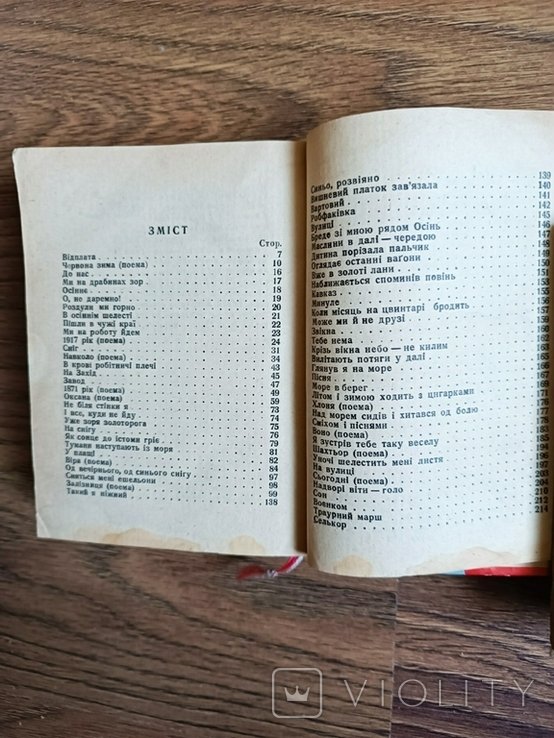 ЗМІСТ
Стор.
Відплата 7
Червона зима (поема) 10
До нас 16
Ми на драбинах зор 17
Осіннє 18
О, не даремно! 19
Роздули ми горно 20
В осіннім шелесті 21
Пішли в чужі краї 22
Ми на роботу йдем 23
1917 рік (поема) 24
Сніг 31
Навколо (поема) 34
В крові робітничі плечі 43
На Захід 45
Завод 47
1871 рік (поема) 49
Оксана (поема) 59
Не біля стінки я 73
І все, куди не йду 74
Уже зоря золоторога 75
На снігу 76
Як сонце до істоми гріє 79
Тумани наступають із моря 81
У плащі 82
Віря (поема) 84
Од вечірнього, од синього снігу 97
Сняться мені ешельони 98
Залізниця (поема) 99
Такий я ніжний 138
Синьо, розвіяно 139
Вишневий платок зав'язала 140
Вартовий 141
Робфаківка 142
Вулиці 143
Бреде зі мною рядом Осінь 145
Маслини в далі — чередою
Дитина порізала пальчик
Оглядає останні вагони
Вже в золоті лани
Наближається споминів повінь
Кавказ
Минуле
Коли місяць на цвинтарі бродить
Може ми й не друзі
Звікна
Тебе нема
Крізь вікна небо — не килим
Вилітають потяги у далі
Глянув я на море
Пісня
Море в берег
Літом і зимою ходить з цигарками
Хлоня (поема)
Над морем сидів і хитався од болю
Сміхом і піснями
Воно (поема)
Я зустрів тебе таку веселу
Шахтьор (поема)
Уночі шелестить мені листя
На вулиці
Сьогодні (поема)
Надворі віти — голо
Сон
Воєнком
Траурний марш 212
Селькор 214
VIOLITY